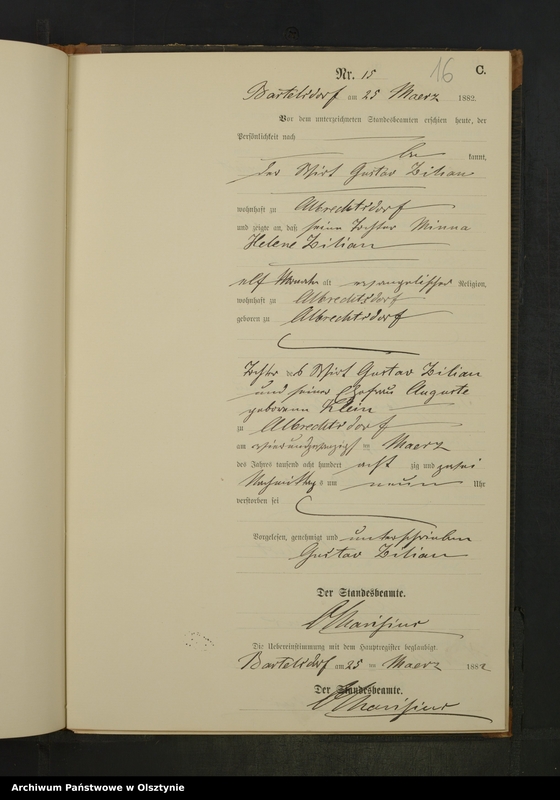 16
Nr. 15
C.
Bartelsdorf am 25 Maerz 1882.
Vor dem unterzeichneten Standesbeamten erschien heute, der
Persönlichkeit nach
be kannt,
der Wirt Gustav Zilian
wohnhaft zu Albrechtsdorf
und zeigte an, daß seine Tochter Minna
Helene Zilian
elf Monate alt evangelischer Religion,
wohnhaft zu Albrechtsdorf
geboren zu Albrechtsdorf
Tochter des Wirt Gustav Zilian
und seiner Ehefrau Auguste
geborenen Klein
zu Albrechtsdorf
am vierundzwanzigst en Maerz
des Jahres tausend acht hundert acht zig und zwei
Nachmittags um neun Uhr
verstorben sei
Vorgelesen, genehmigt und unterschrieben
Gustav Zilian
Der Standesbeamte.
Die Uebereinstimmung mit dem Hauptregister beglaubigt.
Bartelsdorf am 25 ten Maerz 1882
Der Standesbeamte.
Archiwum Państwowe w Olsztynie